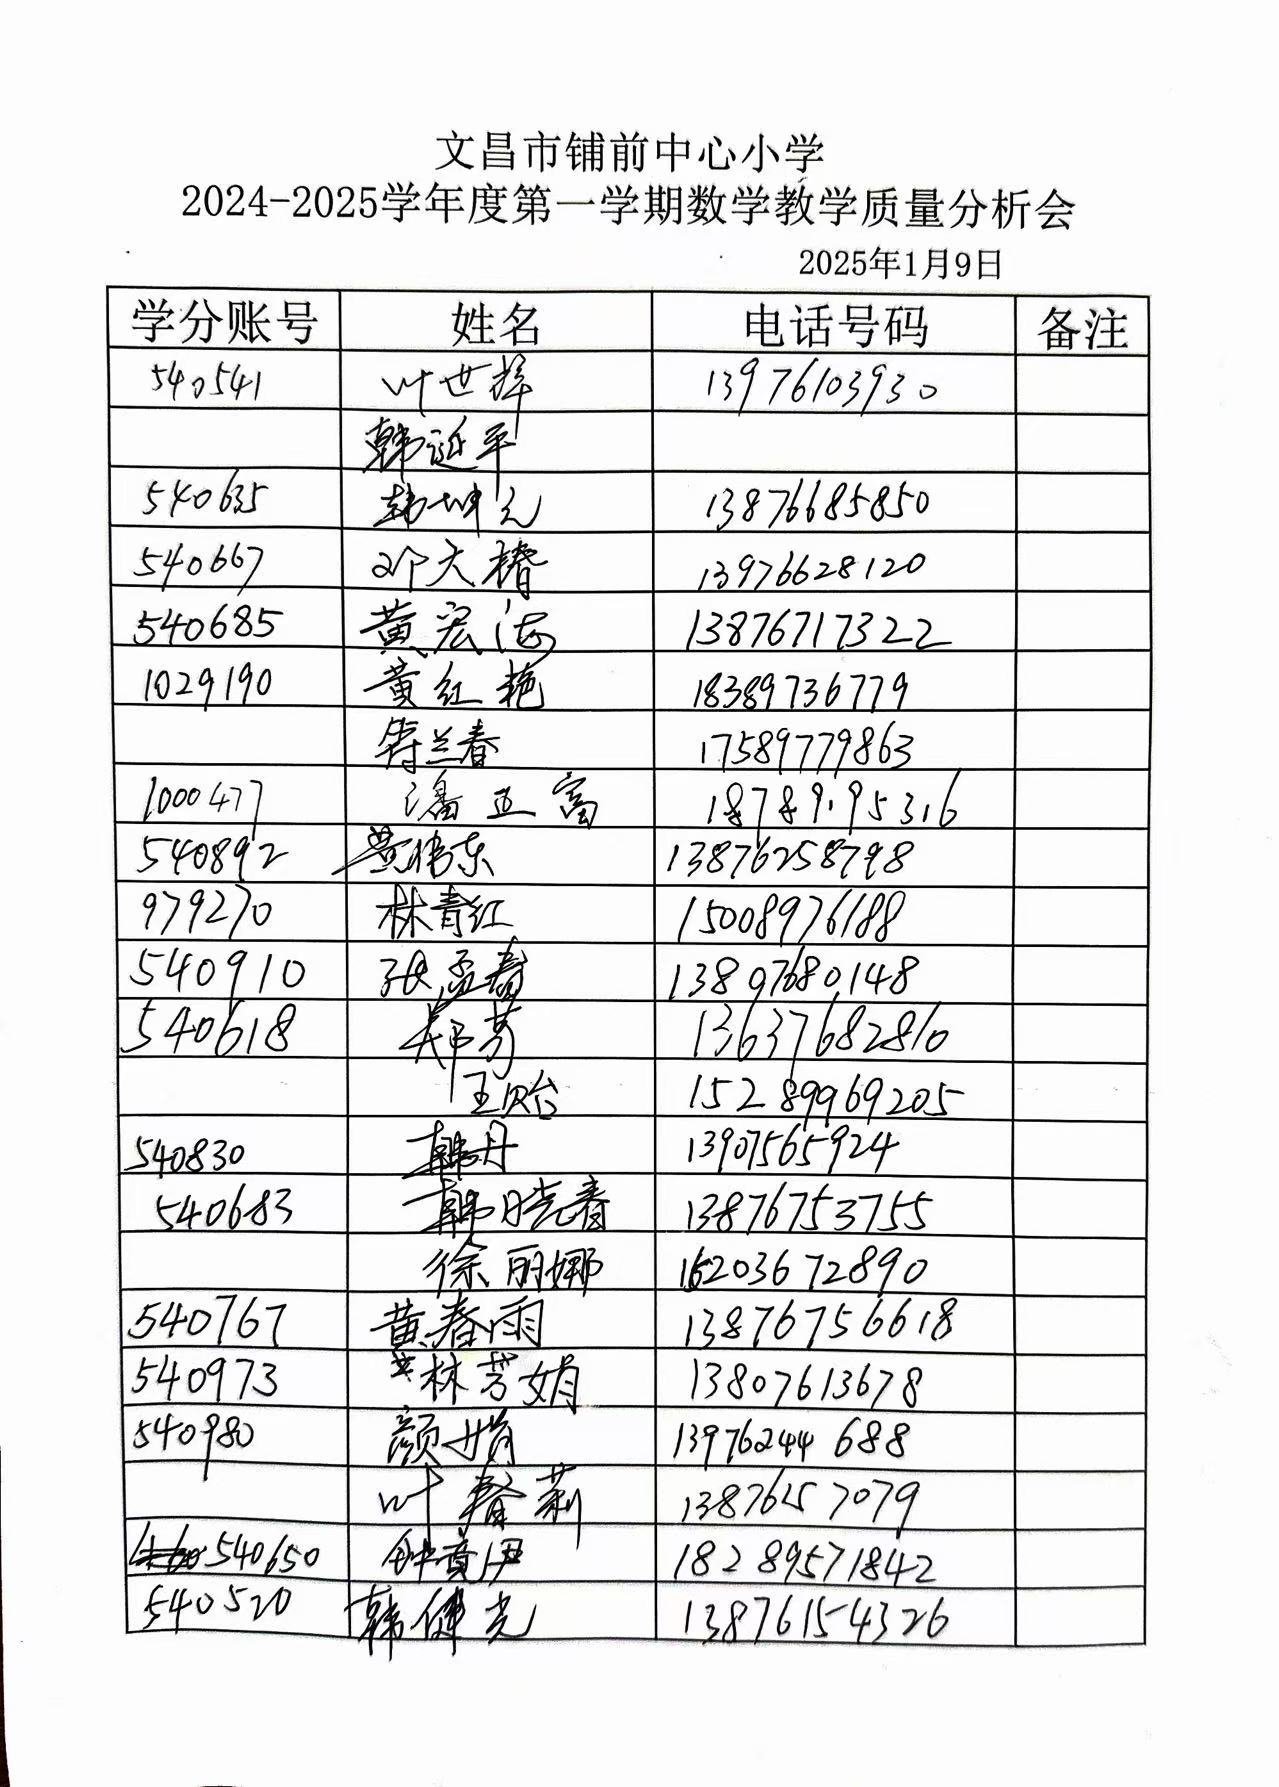 文昌市铺前中心小学
2024-2025学年度第一学期数学教学质量分析会
2025年1月9日
学分账号 姓名 电话号码 备注
540541 叶世择 13976103930
韩诞平
540635 韩坤元 13876685850
540667 邓大椿 13976628120
540685 黄宏海 13876717322
1029190 黄红艳 18389736779
符兰春 17589779863
1000477 潘正富 18789195316
540892 黄伟东 13876258798
979270 林青红 15008976188
540910 张孟春 13807680148
540618 郑芳 13637682810
王贻 15289969205
540830 韩丹 13907565924
540683 韩晓春 13876753755
徐丽娜 16203672890
540767 黄春雨 13876756618
540973 林芳娟 13807613678
540980 颜娟 13976244688
叶春莉 13876257079
540650 钟黄伊 18289571842
540520 韩健光 13876154326